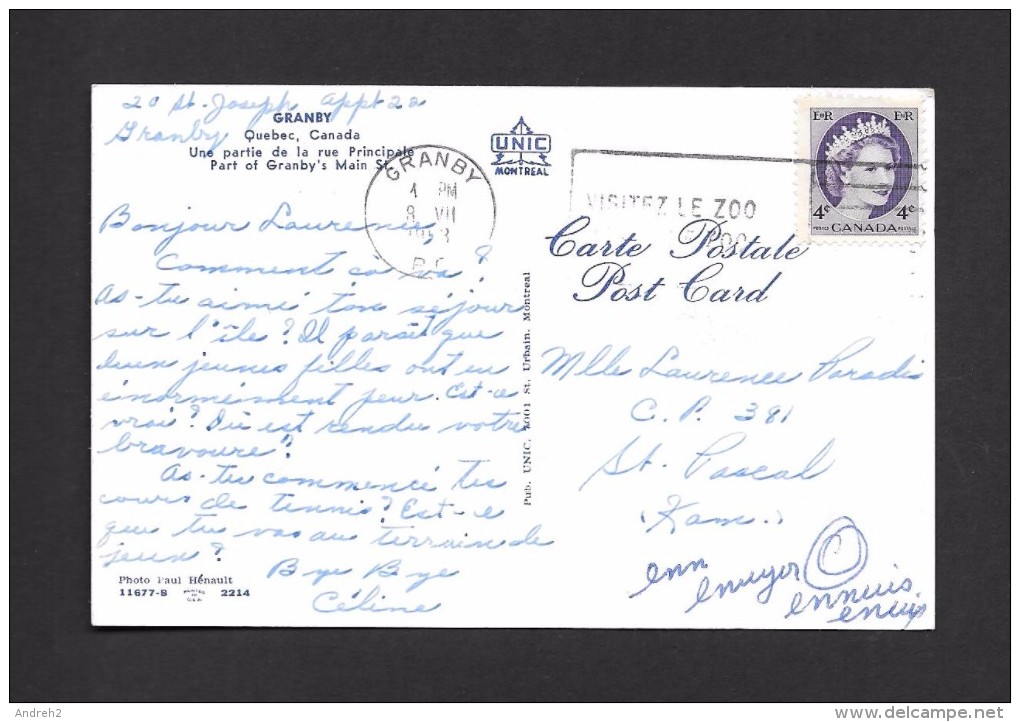 20 St. Joseph Appt 22
Granby
GRANBY
Quebec, Canada
Une partie de la rue Principale
Part of Granby's Main St.
UNIC
MONTREAL
GRANBY
1 PM
8 VII
VISITEZ LE ZOO
EIIR EIIR
4c 4c
POSTES CANADA POSTAGE
Carte Postale
Post Card
Bonjour Laurence,
Comment ça va?
As-tu aimé ton séjour
sur l'île? Il paraît que
deux jeunes filles ont eu
énormément peur. Est-ce
vrai? Où est rendu votre
bravoure?
As-tu commencé tes
cours de tennis? Est-ce
que tu vas au terrain de
jeux?
Bye Bye
Céline
Pub. UNIC, 5001 St. Urbain, Montreal
Mlle Laurence Paradis
C.P. 381
St. Pascal
(Kam.)
enn
ennuis
Photo Paul Hénault
11677-B PRINTED IN U.S.A. 2214
Andreh2
www.delcampe.net